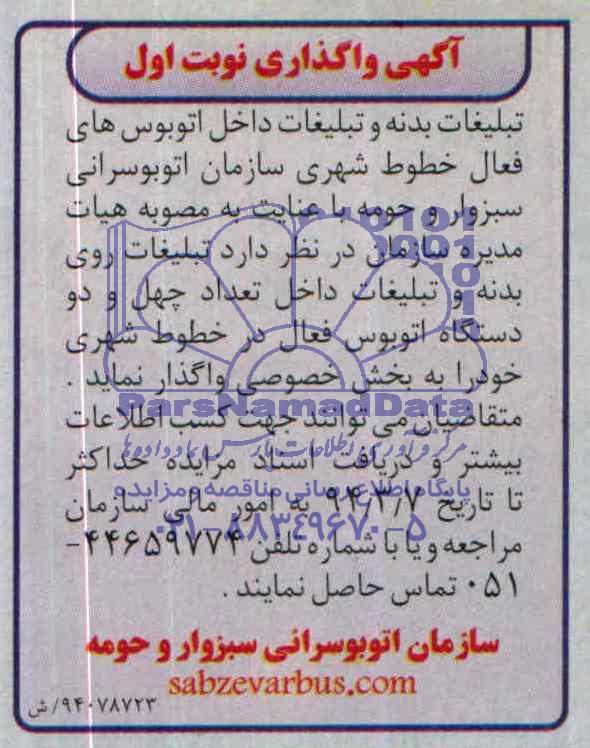 آگهی واگذاری نوبت اول
تبلیغات بدنه و تبلیغات داخل اتوبوس های
فعال خطوط شهری سازمان اتوبوسرانی
سبزوار و حومه با عنایت به مصوبه هیات
مدیره سازمان در نظر دارد تبلیغات روی
بدنه و تبلیغات داخل تعداد چهل و دو
دستگاه اتوبوس فعال در خطوط شهری
خودرا به بخش خصوصی واگذار نماید .
ParsNamadData
متقاضیان می توانند جهت کسب اطلاعات
مرکز فرآوری اطلاعات پارس نماد داده ها
بیشتر و دریافت اسناد مزایده حداکثر
پایگاه اطلاع رسانی مناقصه و مزایده
تا تاریخ ۹۴/۳/۷ به امور مالی سازمان
۰۲۱-۸۸۳۴۹۶۷۰-۵
مراجعه و یا با شماره تلفن ۴۴۶۵۹۷۷۴-
۰۵۱ تماس حاصل نمایند .
سازمان اتوبوسرانی سبزوار و حومه
sabzevarbus.com
۹۴۰۷۸۷۲۳/ش